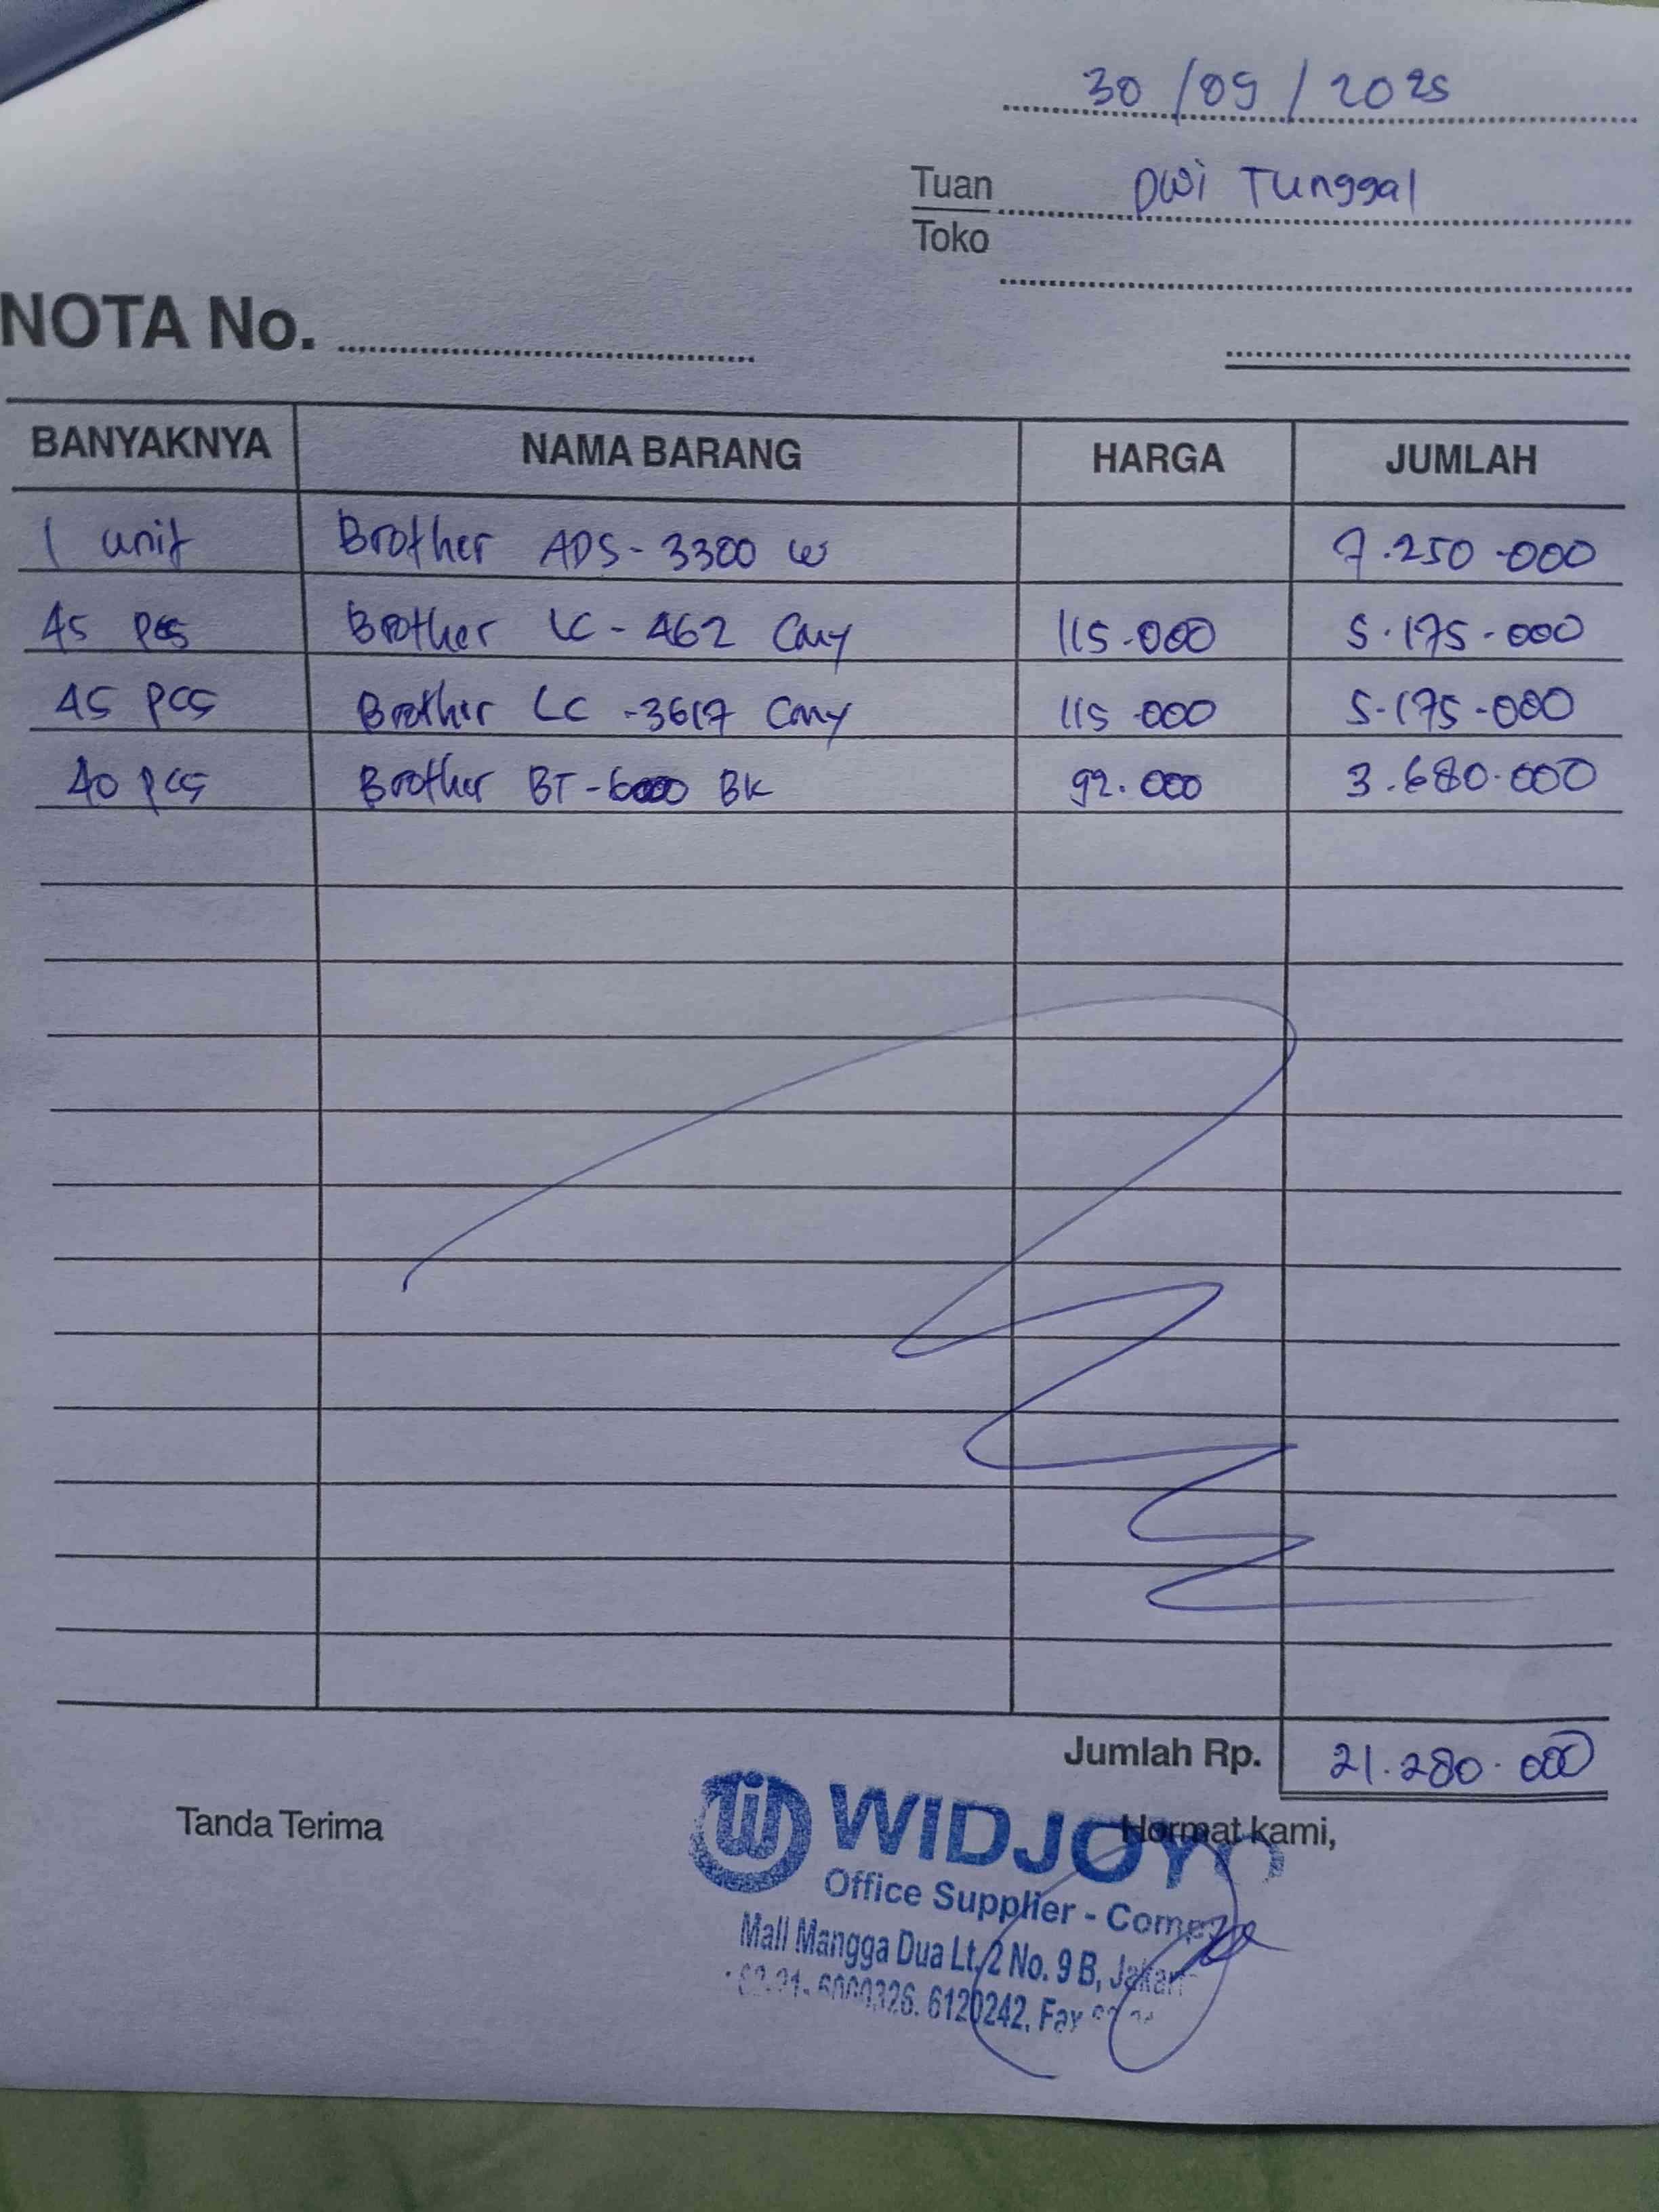 30/09/2025
Tuan Dwi Tunggal
Toko
NOTA No.
BANYAKNYA NAMA BARANG HARGA JUMLAH
1 unit Brother ADS-3300 W 7.250.000
45 pcs Brother LC-462 CMY 115.000 5.175.000
45 pcs Brother LC-3617 CMY 115.000 5.175.000
40 pcs Brother BT-6000 BK 92.000 3.680.000
Jumlah Rp. 21.280.000
Tanda Terima Hormat kami,
WIDJOYO
Office Supplier -
Mall Mangga Dua Lt.2 No. 9 B,
6120242, Fax